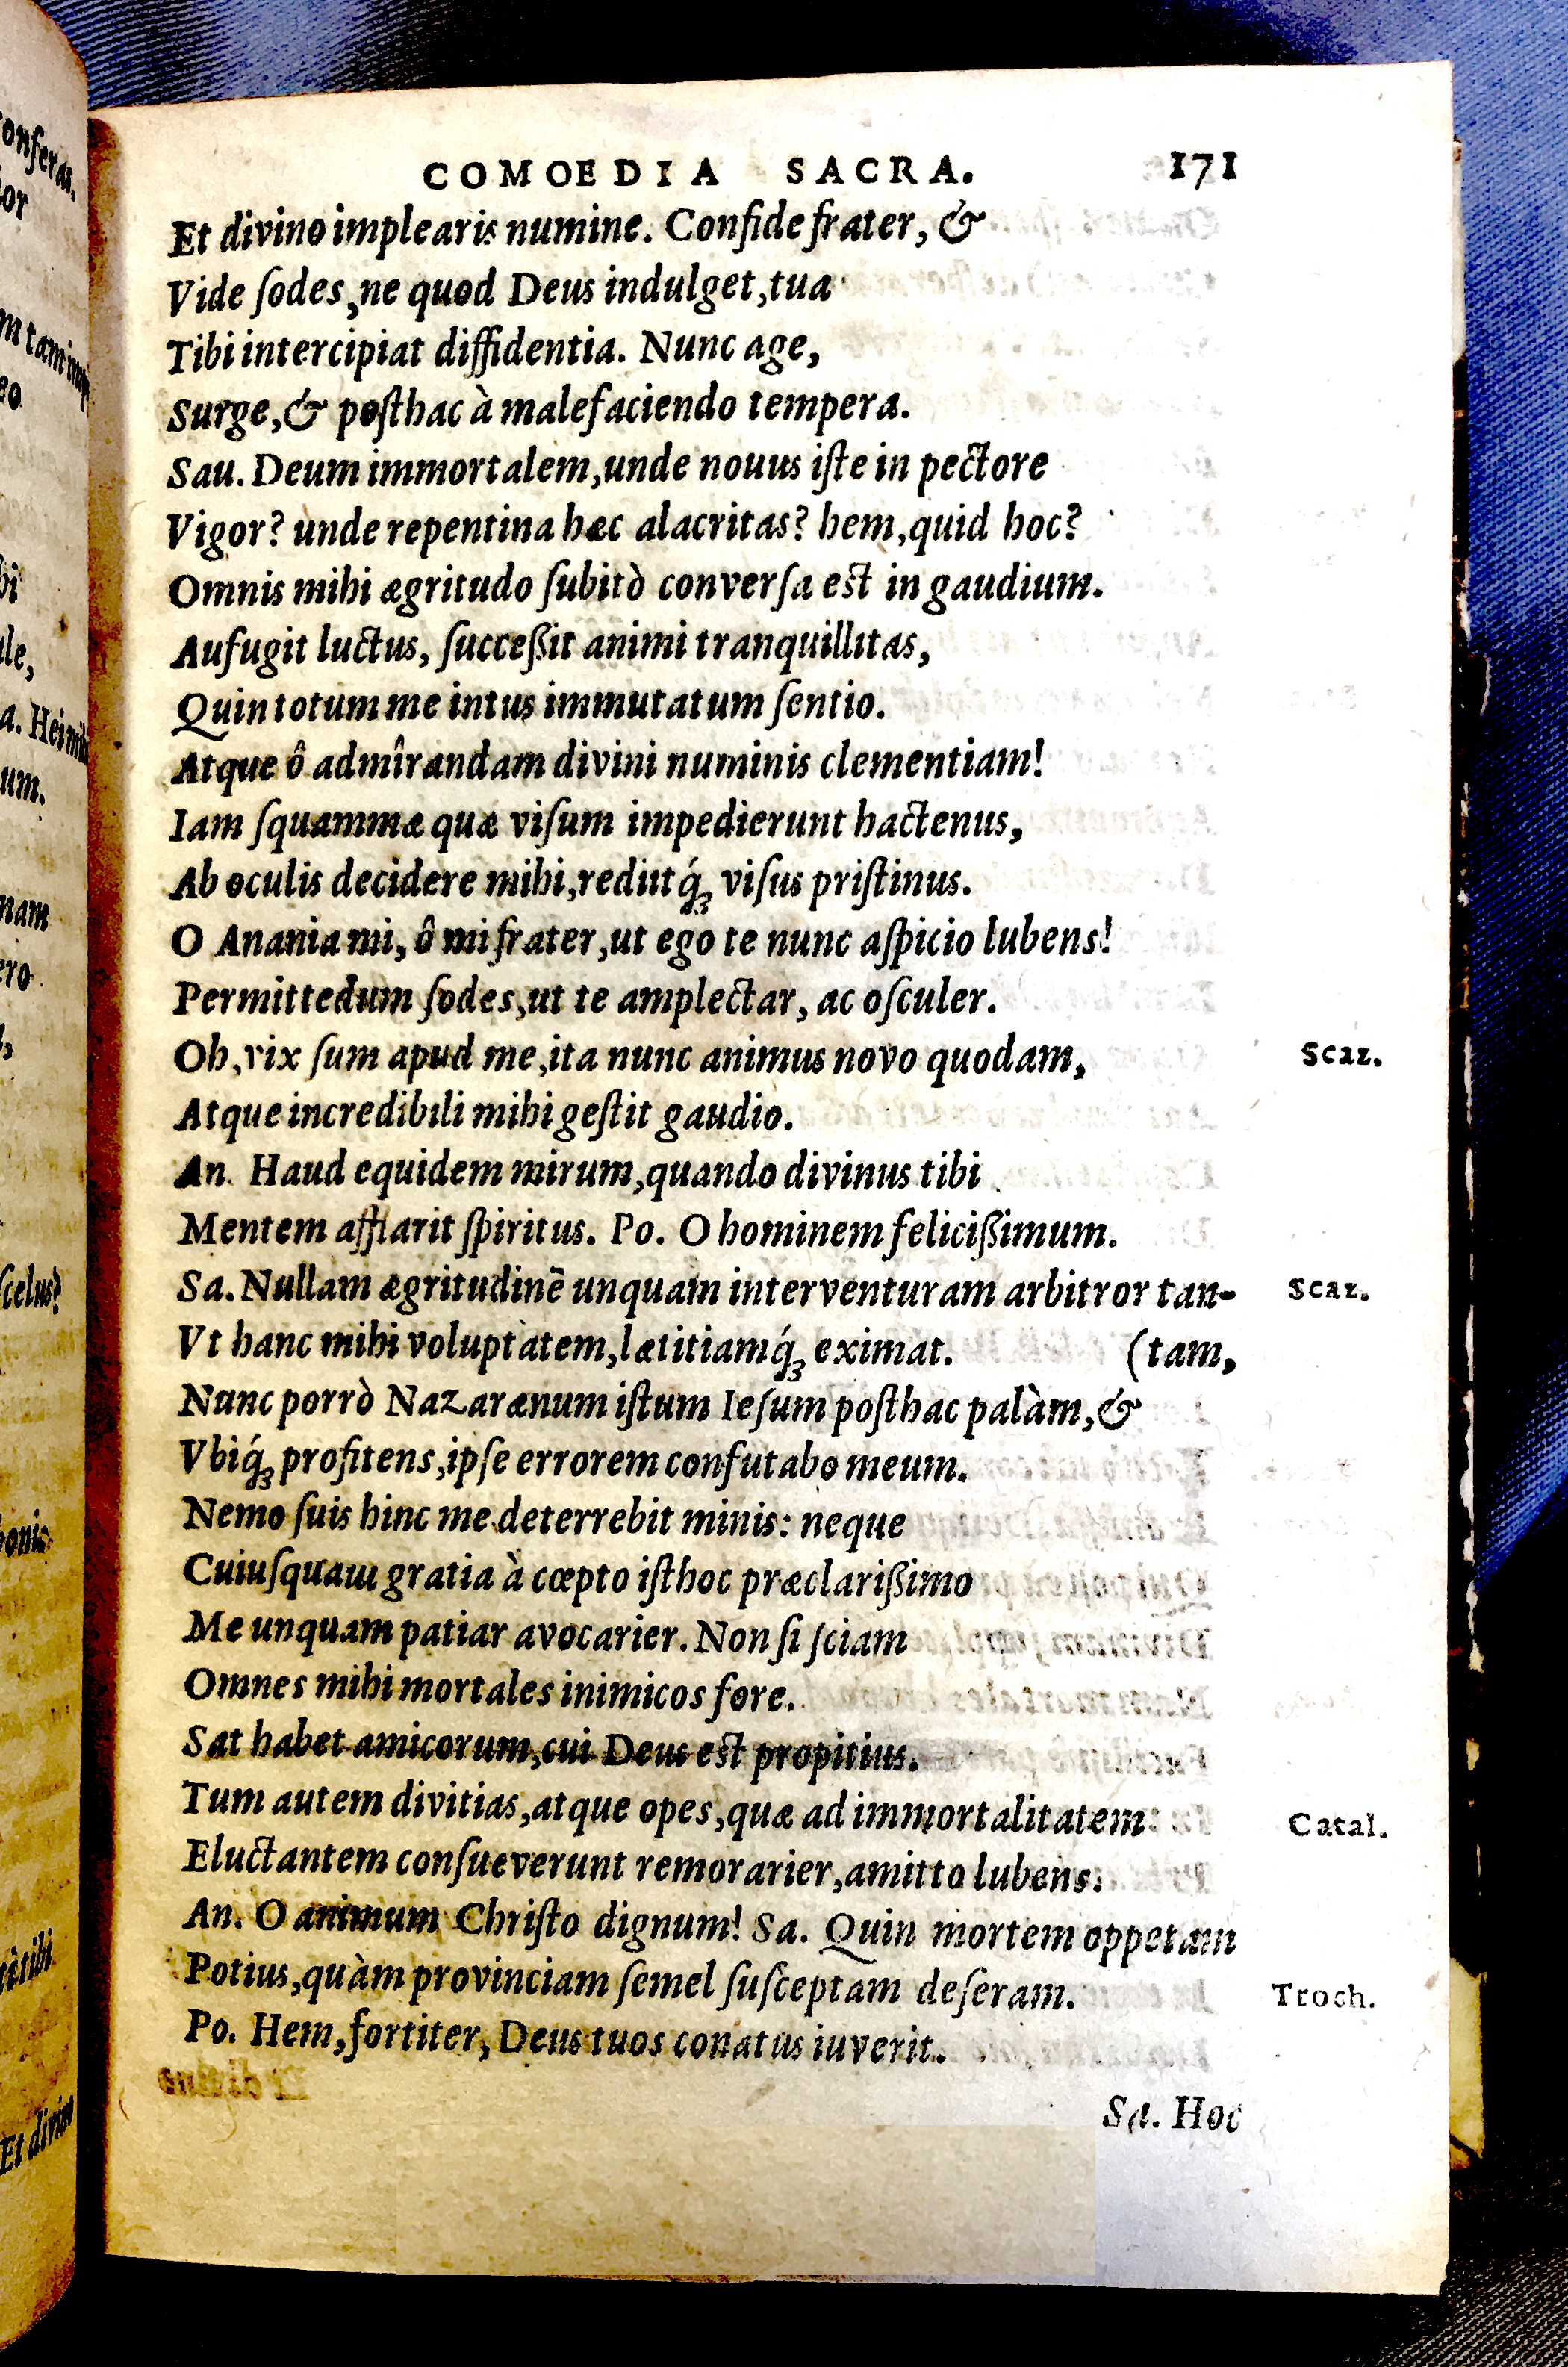 COMOEDIA SACRA. 171
Et divino implearis numine. Confide frater, &
Vide ſodes, ne quod Deus indulget, tua
Tibi intercipiat diffidentia. Nunc age,
Surge, & poſthac à malefaciendo tempera.
Sau. Deum immortalem, unde nouus iſte in pectore
Vigor? unde repentina hæc alacritas? hem, quid hoc?
Omnis mihi ægritudo ſubitò converſa est in gaudium.
Aufugit luctus, ſucceßit animi tranquillitas,
Quin totum me intus immutatum ſentio.
Atque ô admîrandam divini numinis clementiam!
Iam ſquammæ quæ viſum impedierunt hactenus,
Ab oculis decidere mihi, rediitq́ꝫ viſus priſtinus.
O Anania mi, ô mi frater, ut ego te nunc aſpicio lubens!
Permittedum ſodes, ut te amplectar, ac oſculer.
Oh, vix ſum apud me, ita nunc animus novo quodam, Scaz.
Atque incredibili mihi geſtit gaudio.
An. Haud equidem mirum, quando divinus tibi
Mentem afflarit ſpiritus. Po. O hominem felicißimum.
Sa. Nullam ægritudinē unquam interventuram arbitror tan- Scaz.
Vt hanc mihi voluptatem, lætitiamq́ꝫ eximat. (tam,
Nunc porrò Nazarænum iſtum Ieſum poſthac palàm, &
Vbiq́ꝫ profitens, ipſe errorem confutabo meum.
Nemo ſuis hinc me deterrebit minis: neque
Cuiuſquam gratia à cœpto iſthoc præclarißimo
Me unquam patiar avocarier. Non ſi ſciam
Omnes mihi mortales inimicos fore.
Sat habet amicorum, cui Deus est propitius.
Tum autem divitias, atque opes, quæ ad immortalitatem Catal.
Eluctantem conſueverunt remorarier, amitto lubens.
An. O animum Chriſto dignum! Sa. Quin mortem oppetam
Potius, quàm provinciam ſemel ſuſceptam deſeram. Troch.
Po. Hem, fortiter, Deus tuos conatus iuverit.
Sa. Hoc